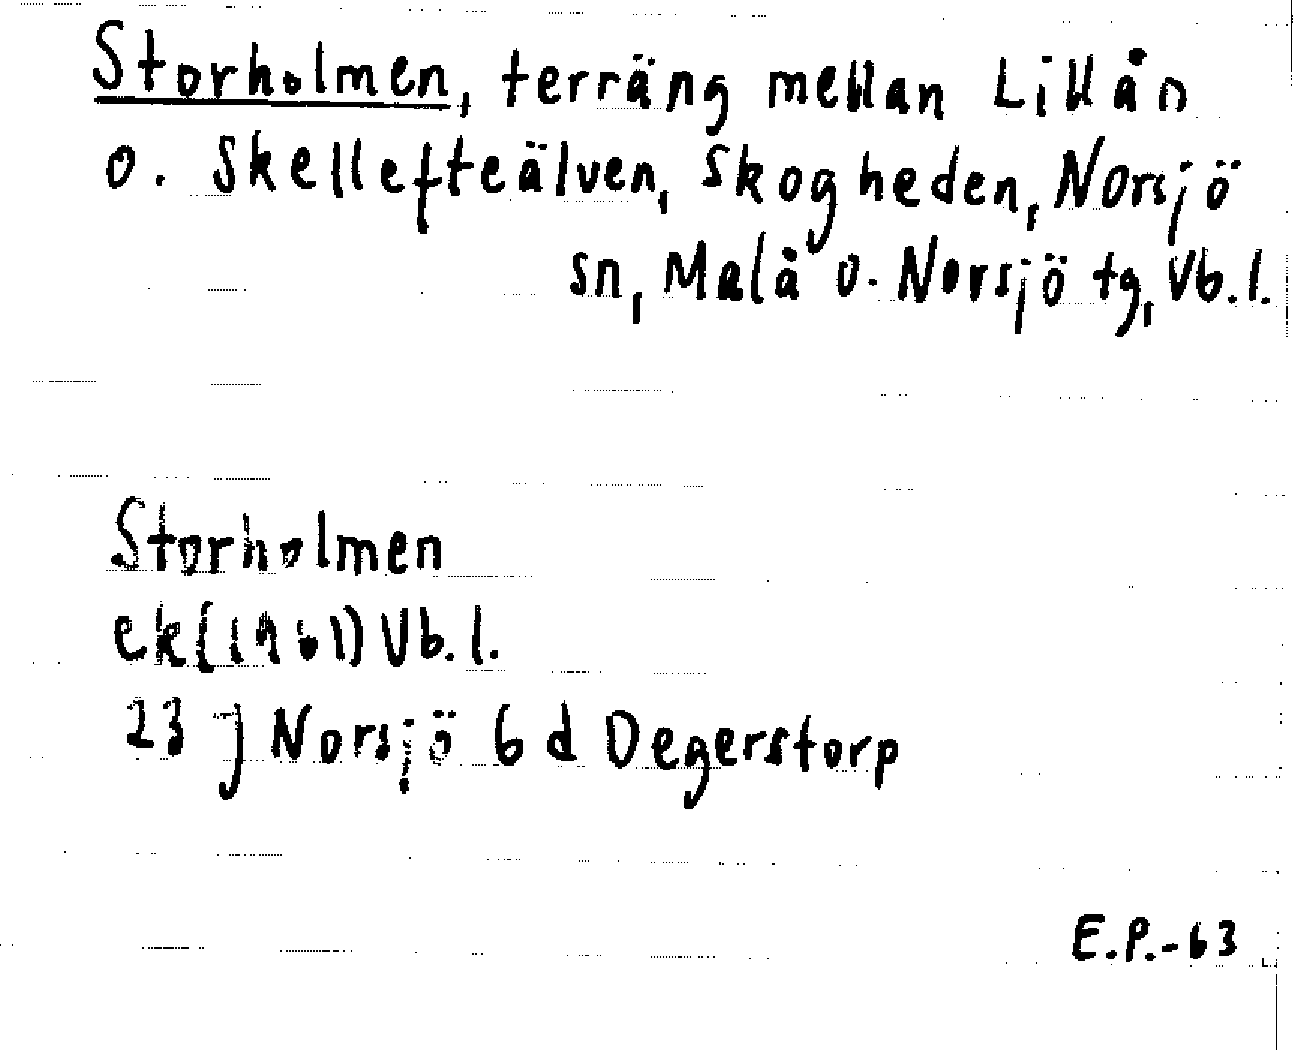 Storholmen, terräng mellan Lillån
o. Skellefteälven, Skogheden, Norsjö
sn, Malå o. Norsjö tg, Vb. l.
Storholmen
ek (1961) Vb. l.
23 J Norsjö 6 d Degerstorp
E.P.-63